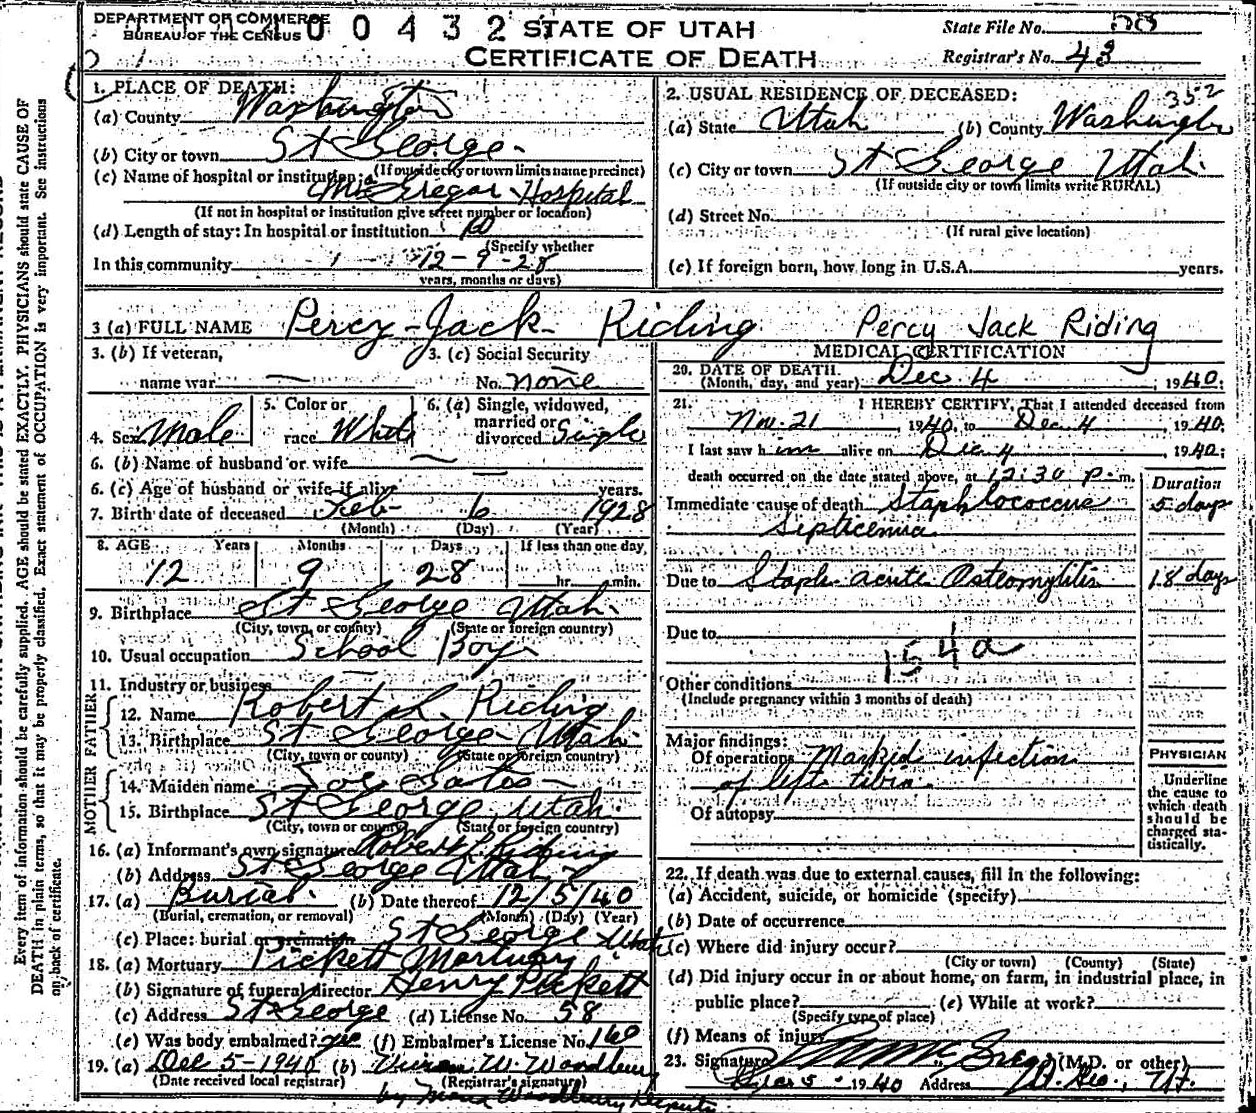 DEPARTMENT OF COMMERCE
BUREAU OF THE CENSUS
0 0 4 3 2
STATE OF UTAH
CERTIFICATE OF DEATH
State File No.
Registrar's No. 43
1. PLACE OF DEATH:
(a) County Washington
(b) City or town St George
(If outside city or town limits name precinct)
(c) Name of hospital or institution:
McGregor Hospital
(If not in hospital or institution give street number or location)
(d) Length of stay: In hospital or institution
(Specify whether
In this community 12-9-28
years, months or days)
2. USUAL RESIDENCE OF DECEASED:
352
(a) State Utah (b) County Washington
(c) City or town St George Utah
(If outside city or town limits write RURAL)
(d) Street No.
(If rural give location)
(e) If foreign born, how long in U.S.A. years.
3 (a) FULL NAME Percy-Jack- Riding Percy Jack Riding
3. (b) If veteran,
name war —
3. (c) Social Security
No. none
4. Sex Male
5. Color or
race White
6. (a) Single, widowed,
married or
divorced Single
6. (b) Name of husband or wife —
6. (c) Age of husband or wife if alive — years.
7. Birth date of deceased Feb 6 1928
(Month) (Day) (Year)
8. AGE Years Months Days If less than one day,
12 9 28 hr. min.
9. Birthplace St George Utah
(City, town, or county) (State or foreign country)
10. Usual occupation School Boy
11. Industry or business
FATHER
12. Name Robert L. Riding
13. Birthplace St George Utah
(City, town or county) (State or foreign country)
MOTHER
14. Maiden name
15. Birthplace St George Utah
(City, town or county) (State or foreign country)
16. (a) Informant's own signature Robert L Riding
(b) Address St George Utah
17. (a) Burial (b) Date thereof 12/5/40
(Burial, cremation, or removal) (Month) (Day) (Year)
(c) Place: burial or cremation St George Utah
18. (a) Mortuary Pickett Mortuary
(b) Signature of funeral director Henry Pickett
(c) Address St George (d) License No. 58
(e) Was body embalmed? yes (f) Embalmer's License No. 160
19. (a) Dec 5-1940 (b) W. Woodbury
(Date received local registrar) (Registrar's signature)
by Woodbury Deputy
MEDICAL CERTIFICATION
20. DATE OF DEATH
(Month, day, and year) Dec 4, 1940;
21. I HEREBY CERTIFY, That I attended deceased from
Nov. 21 1940, to Dec 4, 1940;
I last saw him alive on Dec 4 1940;
death occurred on the date stated above, at 12:30 p.m.
Duration
Immediate cause of death Staphlococcus 5 days
Septicemia
Due to Staph- acute Osteomylitis 18 days
Due to
154a
Other conditions
(Include pregnancy within 3 months of death)
Major findings:
Of operations Marked infection
of left tibia
Of autopsy
PHYSICIAN
Underline
the cause to
which death
should be
charged sta-
tistically.
22. If death was due to external causes, fill in the following:
(a) Accident, suicide, or homicide (specify)
(b) Date of occurrence
(c) Where did injury occur?
(City or town) (County) (State)
(d) Did injury occur in or about home, on farm, in industrial place, in
public place? (e) While at work?
(Specify type of place)
(f) Means of injury
23. Signature McGregor (M.D. or other)
5 1940 Address St. Geo., Ut.
Every item of information should be carefully supplied. AGE should be stated EXACTLY. PHYSICIANS should state CAUSE OF
DEATH in plain terms, so that it may be properly classified. Exact statement of OCCUPATION is very important. See instructions
on back of certificate.